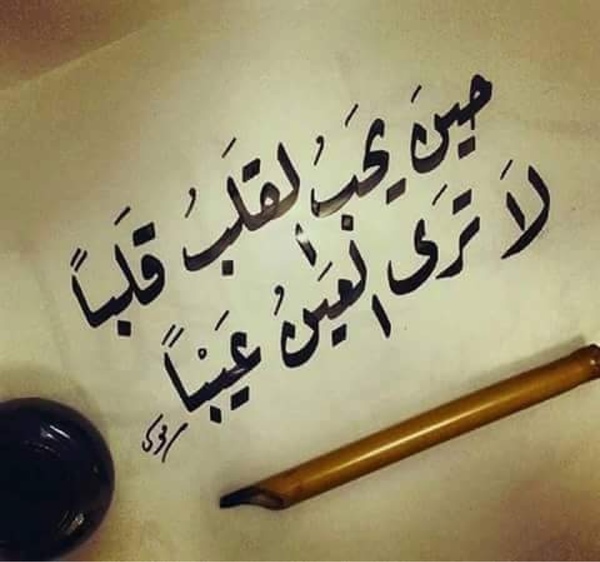 حينَ يحبُ القلَبُ قلَباً
لاَ ترَى العيَنُ عَيَبْاً